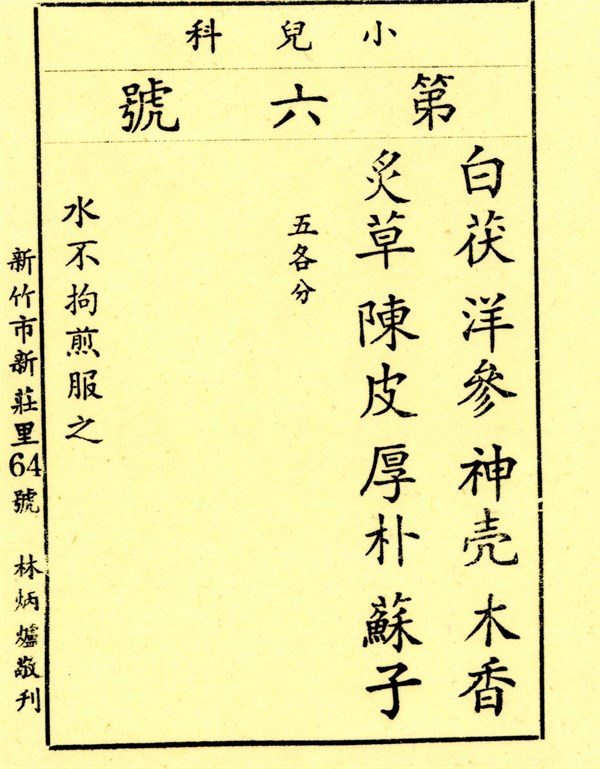 小兒科
第六號
白茯 洋參 神壳 木香
炙草 陳皮 厚朴 蘇子
五各分
水不拘煎服之
新竹市新莊里64號 林炳爐敬刊